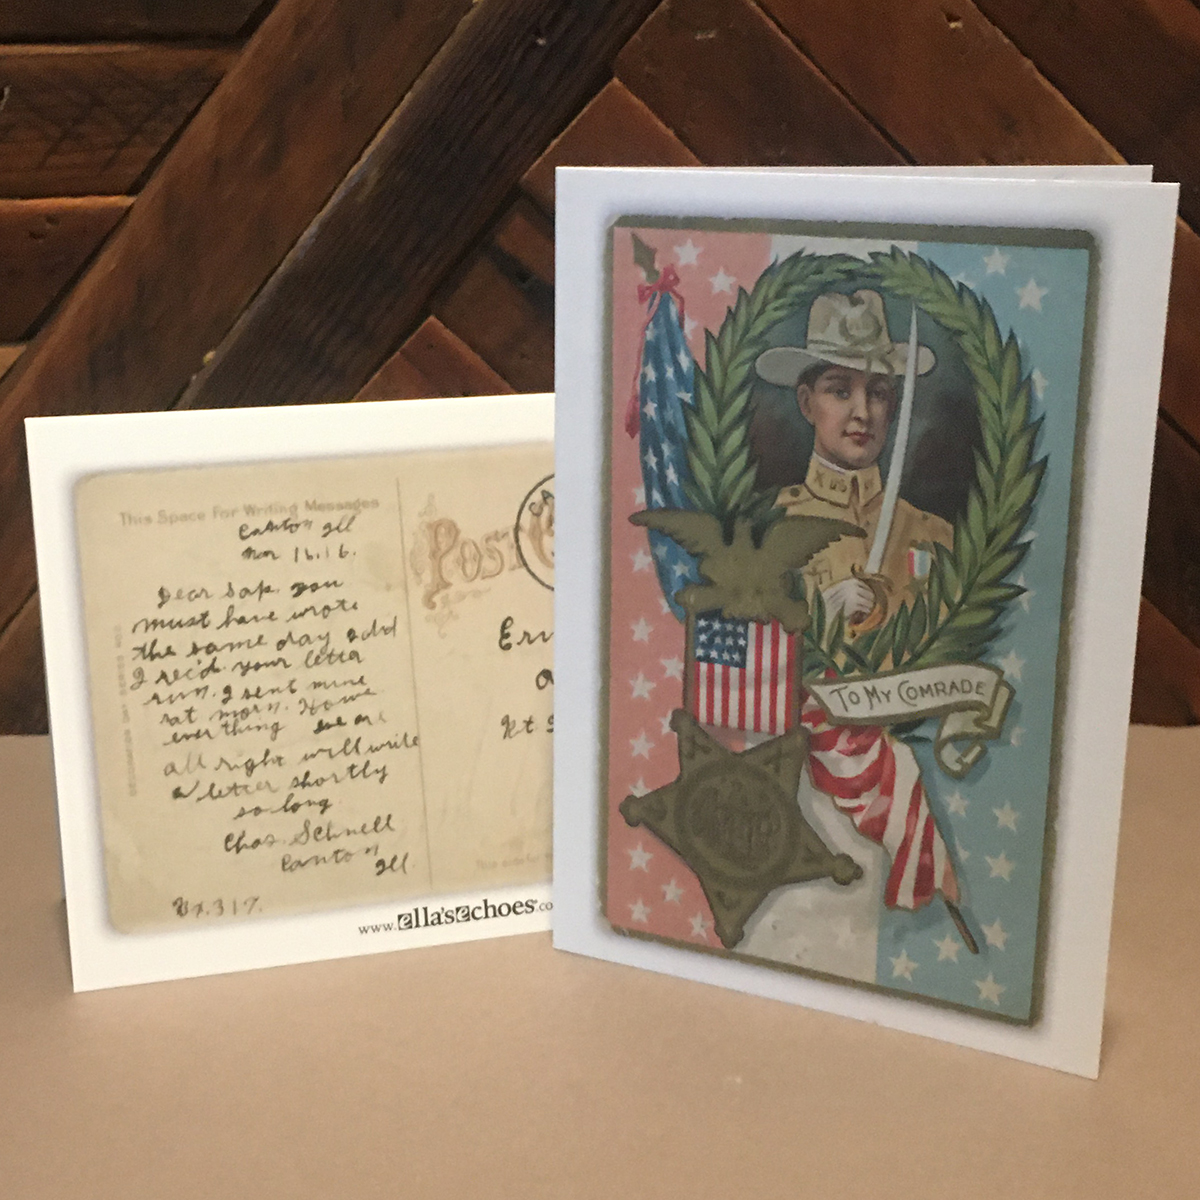 This Space For Writing Messages
Canton Ill
Nov 16.16.
Dear Sap. you
must have wrote
the same day I did
I rec'd. your letter
I sent mine
at morn. How
everthing we are
all right will write
a letter shortly
so long.
Chas. Schnell
Canton
Ill.
317.
DECORATION DAY SERIES NO
POST C
CA
Ern
Rt
This
www.ella'sechoes.co
X US
TO MY COMRADE